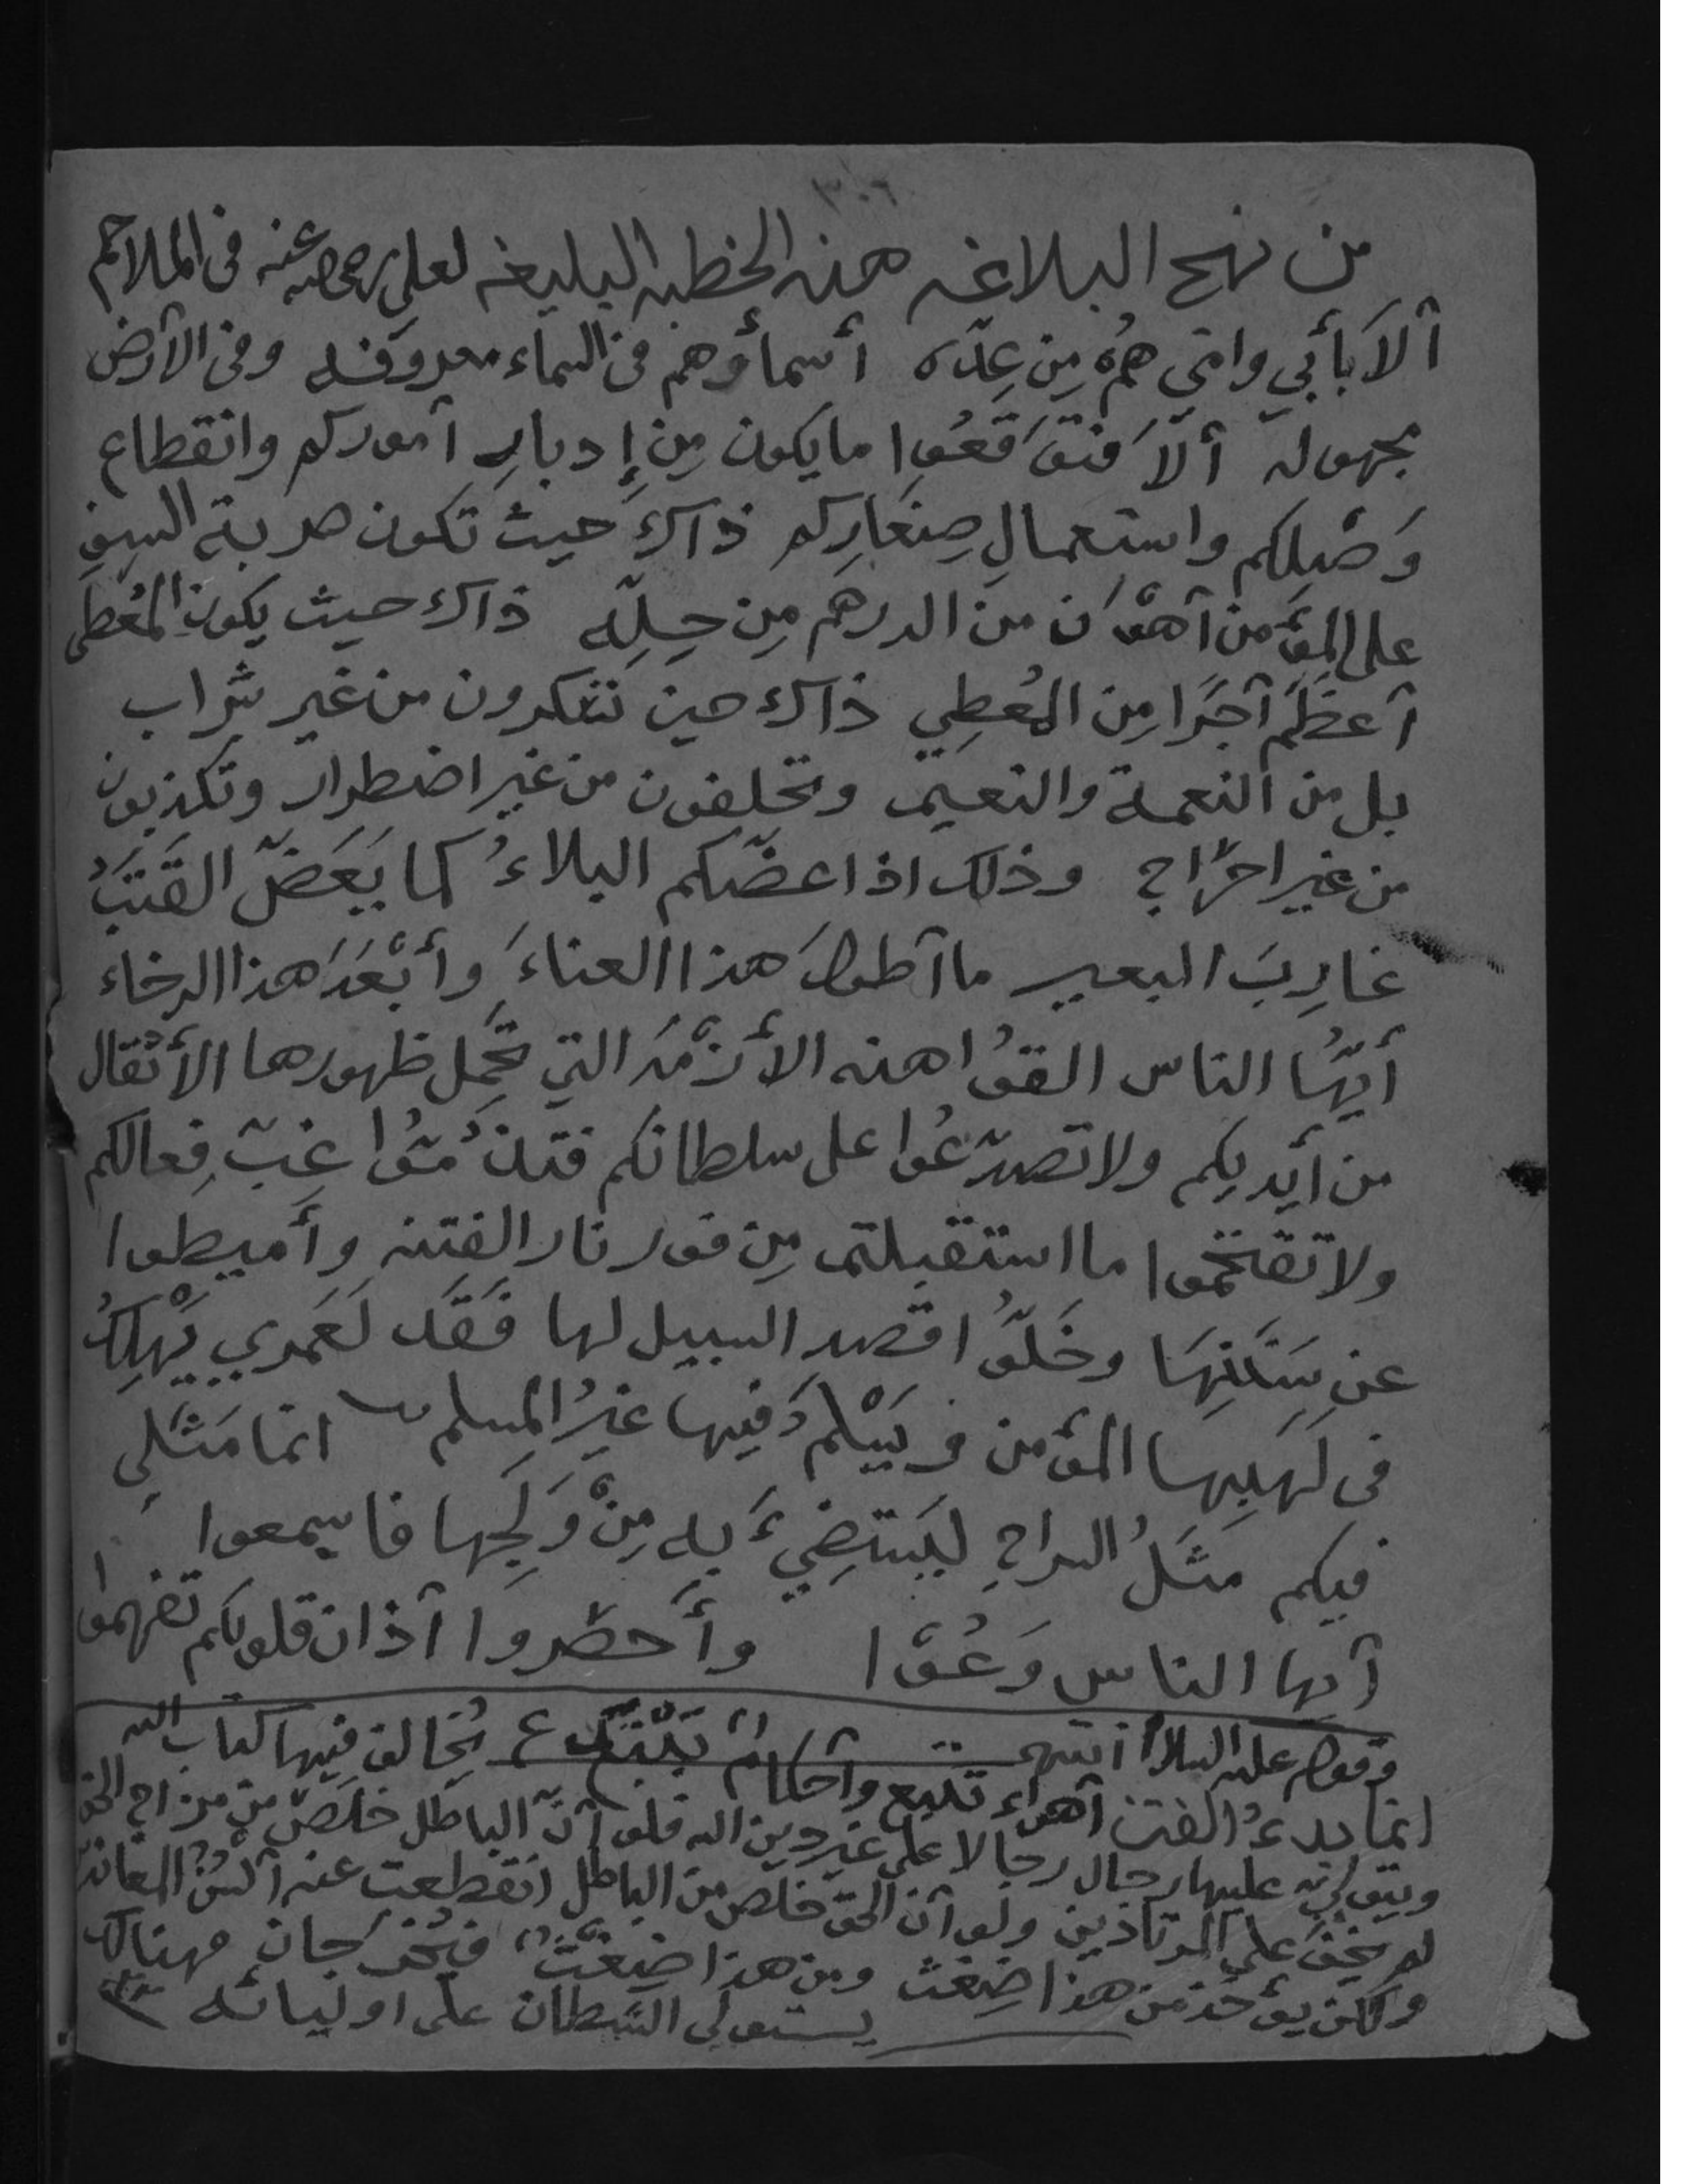 ٣٠٦
من نهج البلاغه هذه الخطبه البليغه لعلي رضي الله عنه في الملاحم
ألا بأبي وامي همُ مِن عِدّه أسماؤهم في السماء معروفه وفي الأرض
مجهوله ألا فتوَقعُوا ما يكون مِن إدبارِ أموركم وانقطاع
وَصْلِكم واستعمالِ صِغارِكم ذاكَ حيث تكون ضربة السيفِ
على المؤمن أهْوَن من الدرهم مِن حِلِّه ذاك حيث يكون المُعْطى
أعظَم أجرًا مِن المُعطِي ذاك حين تسكرون من غير شراب
بل من النعمة والنعيم وتحلفون من غير اضطرار وتكذبون
من غير احراج وذلك اذا عضّكم البلاءُ كما يَعَضّ القَتَبُ
غارِبَ البعير ما أطولَ هذا العناءَ وأبْعَدَ هذا الرخاء
أيّهُا الناس القوُا هذه الأزْمّهَ التي تحمِل ظهورها الأثقال
من أيديكم ولا تصدّعُوا على سلطانكم فتذُمّوُا غِبّ فِعالكم
ولا تقتحموا ما استقبلتم مِن فور نار الفتنه وأميطوا
عن سَنَنِهَا وخَلّوُا قصد السبيل لها فَقَد لَعَمري يَهْلِكُ
في لَهَبِها المؤمن ويَسْلمُ فيها غيرُ المسلم انما مَثَلي
فيكم مَثَلُ السراجِ ليَستَضِيءَ به مِنْ وَلَجَها فاسمعوا
أيها الناس وَعُوْا وأحضروا آذان قلوبكم تفهموا
وقوله عليه السلام انتهى
انما بدءُ الفتن أهواء تتبع وأحكام تُبْتَدع يُخالف فيها كتاب الله
ويتولى عليها رجال رجالا على غير دين الله فلو أنّ الباطل خلَصَ من مزاج الحق
لم يخفَ على المرتادين ولو أن الحق خلص من الباطل انقطعت عنه ألسُنُ المعاندين
ولكن يؤخذ من هذا ضِغث ومن هذا ضِغثٌ فيُمزَجان فهنالك
يستولي الشيطان على اوليائه